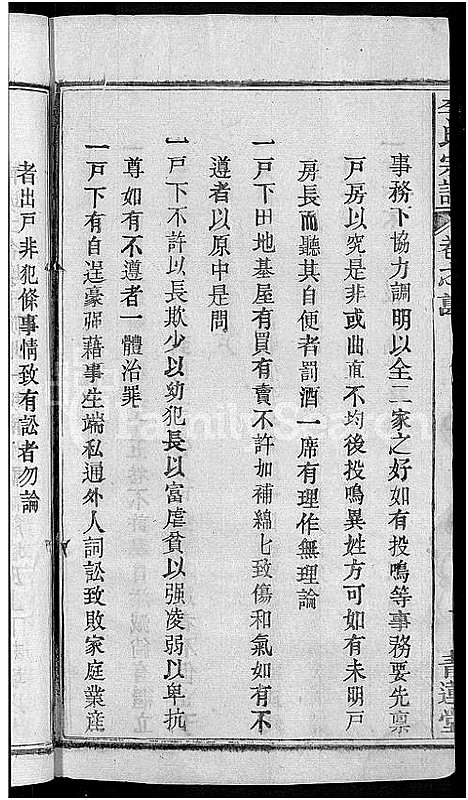 李氏宗譜
卷之
青蓮堂
事務下協力調明以全二家之好如有投鳴等事務要先禀
戶房以究是非或曲直不均後投鳴異姓方可如有未明戶
房長而聽其自便者罰酒一席有理作無理論
一戶下田地基屋有買有賣不許加補綿七致傷和氣如有不
遵者以原中是問
一戶下不許以長欺少以幼犯長以富虐貧以强凌弱以卑抗
尊如有不遵者一體治罪
一戶下有自逞豪强藉事生端私通外人詞訟致敗家庭業産
者出戶非犯條事情致有訟者勿論
FamilySearch